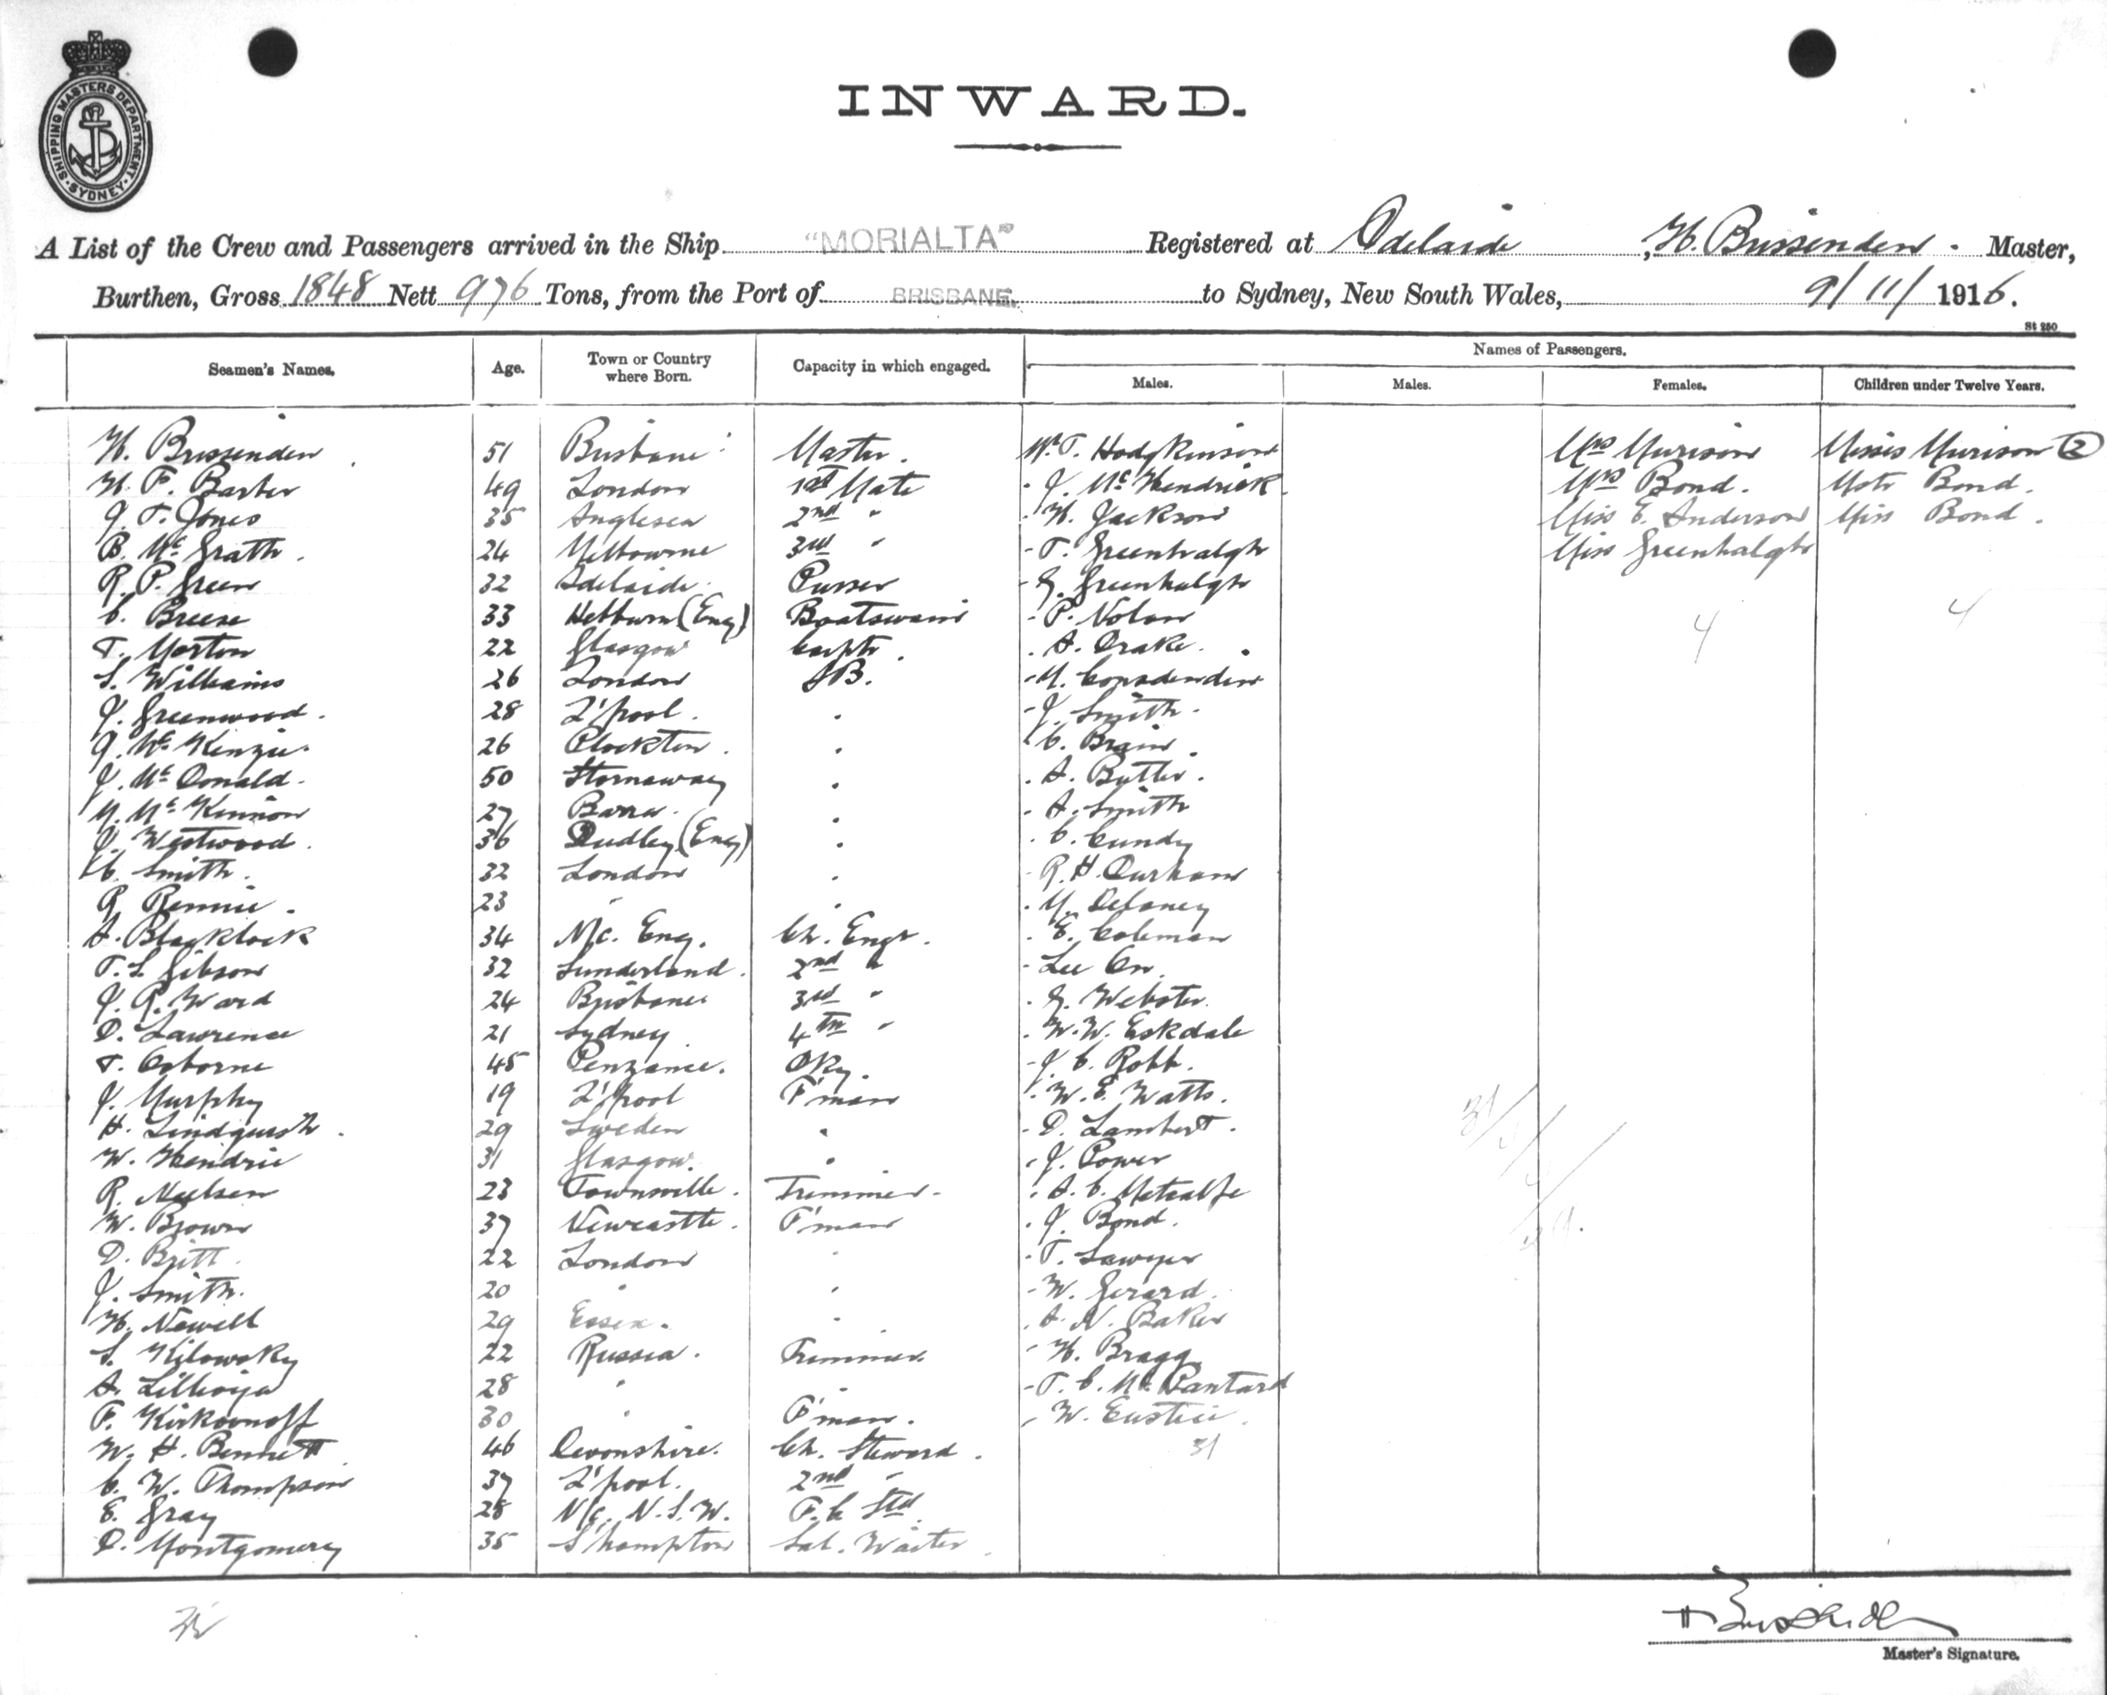 SHIPPING MASTERS DEPARTMENT. SYDNEY
INWARD.
A List of the Crew and Passengers arrived in the Ship "MORIALTA" Registered at Adelaide, H. Brissenden. Master,
Burthen, Gross 1848 Nett 976 Tons, from the Port of BRISBANE. to Sydney, New South Wales, 9/11/1916.
St 250
Seamen's Names. Age. Town or Country where Born. Capacity in which engaged. Names of Passengers.
Males. Males. Females. Children under Twelve Years.
H. Brissenden 51 Brisbane Master. W. T. Hodgkinson Mrs Murison Misses Murison (2)
H. F. Barber 49 London 1st Mate J. McKendrick Mrs Bond. Mstr Bond.
J. T. Jones 35 Anglesea 2nd " H. Jackson Miss E. Anderson Miss Bond.
B. McGrath. 24 Melbourne 3rd " T. Greenhalgh Miss Greenhalgh
R. P. Green 32 Adelaide. Purser G. Greenhalgh
C. Breese 33 Hebburn (Eng) Boatswain P. Nolan 4 4
T. Morton 22 Glasgow Carptr. A. Drake.
S. Williams 26 London AB. M. Considen
J. Greenwood. 28 L'pool. . J. Smith.
J. McKenzie. 26 Plockton. . C. Brain.
J. McDonald. 50 Stornaway . A. Butler.
M. McKinnon 27 Barra. . A. Smith
J. Westwood. 36 Dudley (Eng) . C. Cundy
C. Smith. 32 London . R. H. Durham
R. Rennie. 23 " . M. Delaney
A. Blacklock 34 N/c. Eng. Ch. Engr. E. Coleman
T. S. Gibson 32 Sunderland. 2nd " Lee On.
J. R. Ward 24 Brisbane 3rd " G. Webster.
D. Lawrence 21 Sydney 4th " W. W. Eskdale
T. Osborne 45 Penzance. Dky. J. C. Robb.
J. Murphy 19 L'pool F'man W. E. Watts.
H. Lindquist. 29 Sweden . D. Lambert.
W. Hendrie 31 Glasgow. . J. Power
R. Neelsen 23 Townsville. Trimmer. A. C. Metcalfe
W. Brown 37 Newcastle. F'man J. Bond.
D. Britt. 22 London . T. Sawyer
J. Smith. 20 . . W. Gerard.
H. Newell 29 Essex. . A. N. Baker
S. Kilowsky 22 Russia. Trimmer. H. Bragg
A. 28 . . T. C.
F. Kirkoonoff 30 . F'man. W. Eustice.
W. H. Bennett 46 Devonshire. Ch. Steward. 31
C. W. Thompson 37 L'pool. 2nd "
E. Gray 28 N/c. N.S.W. F. C. Std.
D. Montgomery 35 S'hampton Sal. Waiter.
Master's Signature.